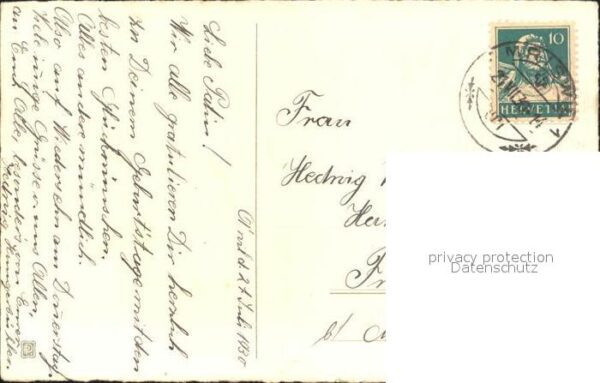 d. 27. Juli 1930
Liebe Patin!
Wir alle gratulieren Dir herzlich
zu Deinem Geburtstage mit den
besten Glückwünschen.
Alles andere mündlich.
Also auf Wiedersehn am Donnerstag.
Viele innige Grüsse v. uns Allen,
an Euch Alle, besonders von Eurer
Hedwig
10
HELVETIA
Frau
Hedwig
privacy protection
Datenschutz
b/